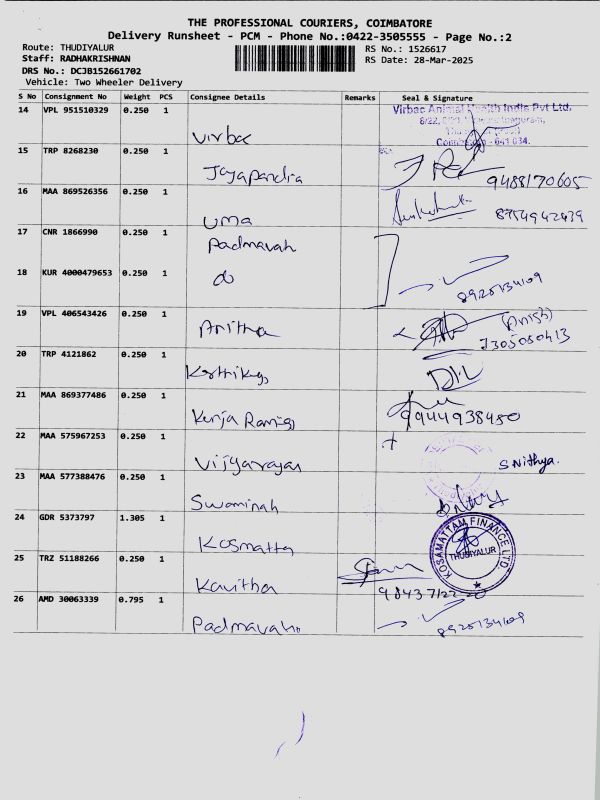 THE PROFESSIONAL COURIERS, COIMBATORE
Delivery Runsheet - PCM - Phone No.:0422-3505555 - Page No.:2
Route: THUDIYALUR
RS No.: 1526617
Staff: RADHAKRISHNAN
RS Date: 28-Mar-2025
DRS No.: DCJB152661702
Vehicle: Two Wheeler Delivery
S No Consignment No Weight PCS Consignee Details Remarks Seal & Signature
14 VPL 951510329 0.250 1 Virbac
Virbac Animal Health India Pvt Ltd.
15 TRP 8268230 0.250 1 Jayapandia 9488170605
16 MAA 869526356 0.250 1 uma 8754942439
17 CNR 1866990 0.250 1 Padmavah
18 KUR 4000479653 0.250 1 do 8925134109
19 VPL 406543426 0.250 1 Anitha (Anish)
7305050413
20 TRP 4121862 0.250 1
21 MAA 869377486 0.250 1 9944938450
22 MAA 575967253 0.250 1 Vijyarayan S Nithya.
23 MAA 577388476 0.250 1 Swaminah
24 GDR 5373797 1.305 1 Kosmatta
KOSAMATTAM FINANCE LTD.
THUDIYALUR
25 TRZ 51188266 0.250 1 Kavitha
98437122 20
26 AMD 30063339 0.795 1 Padmavah 8925134109